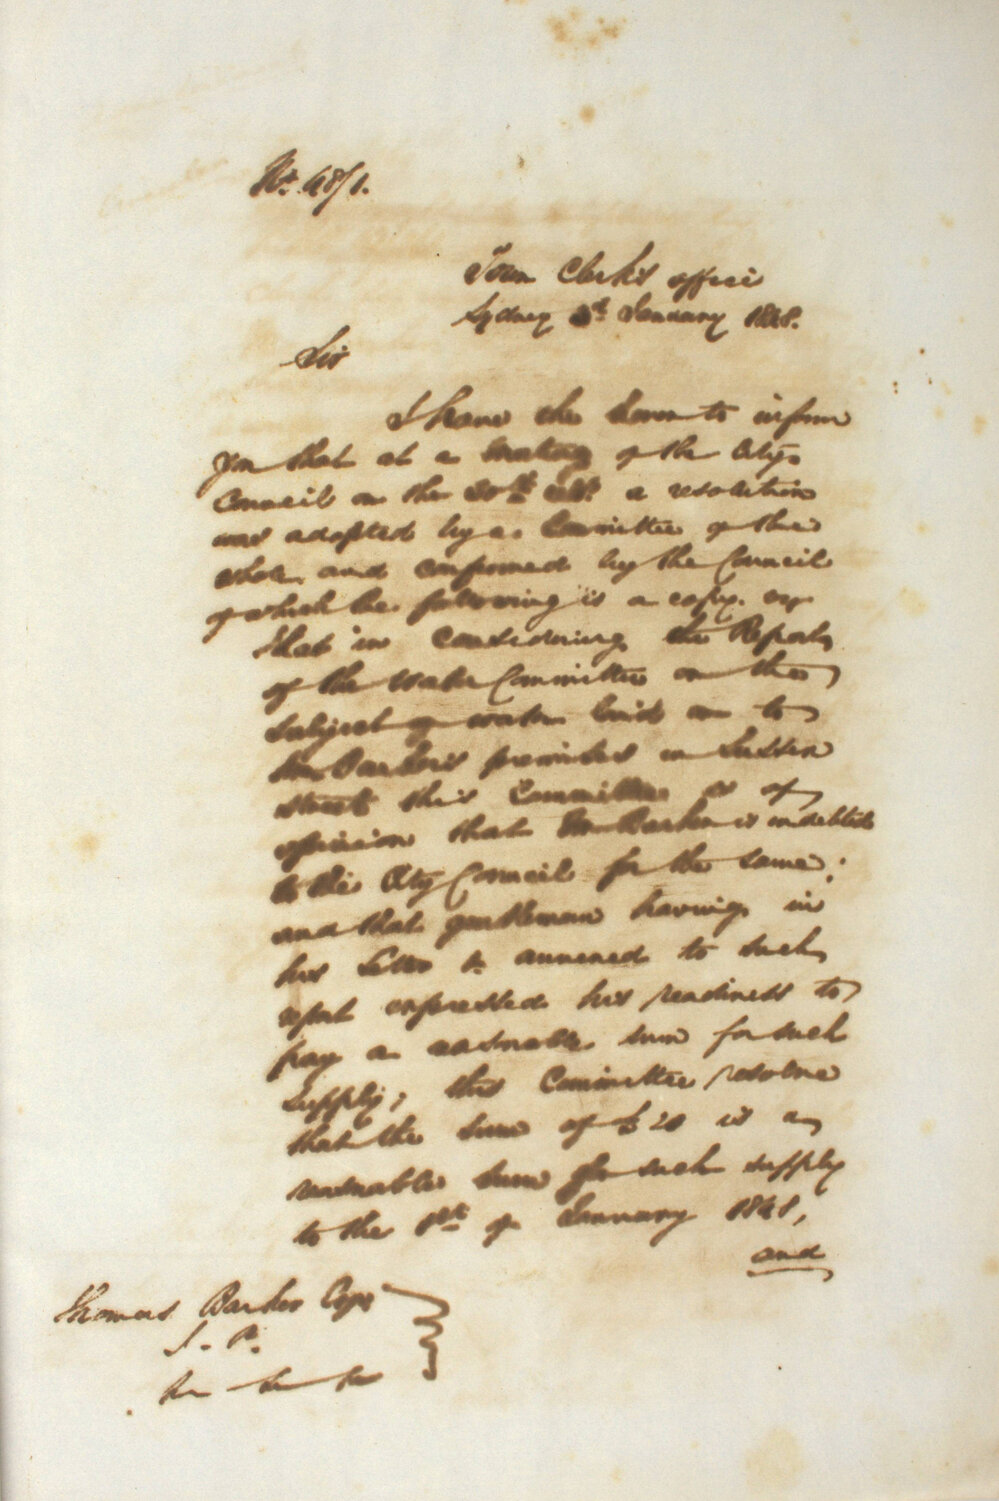 No. 48/1.
Town Clerk's office
Sydney 3d January 1848.
Sir
I have the honor to inform
you that at a meeting of the City
Council on the 30th ult. a resolution
was adopted by a Committee of the
whole and confirmed by the Council
of which the following is a copy. viz
That in considering the Report
of the Water Committee on the
subject of water laid on to
Mr. Barker's premises in Sussex
street this Committee is of
opinion that Mr Barker is indebted
to the City Council for the same;
and that gentleman having in
his letter annexed to such
report expressed his readiness to
pay a reasonable sum for such
supply; this Committee resolve
that the sum of £20 is a
reasonable sum for such supply
to the 1st of January 1848,
and
Thomas Barker Esqr
J. P.